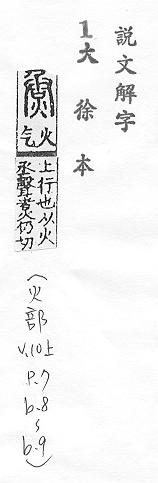 説文解字
1大徐本
烝
火
气
上行也从火
丞聲煑仍切
(火部
v.10上
p.7
b.8
〜
b.9)